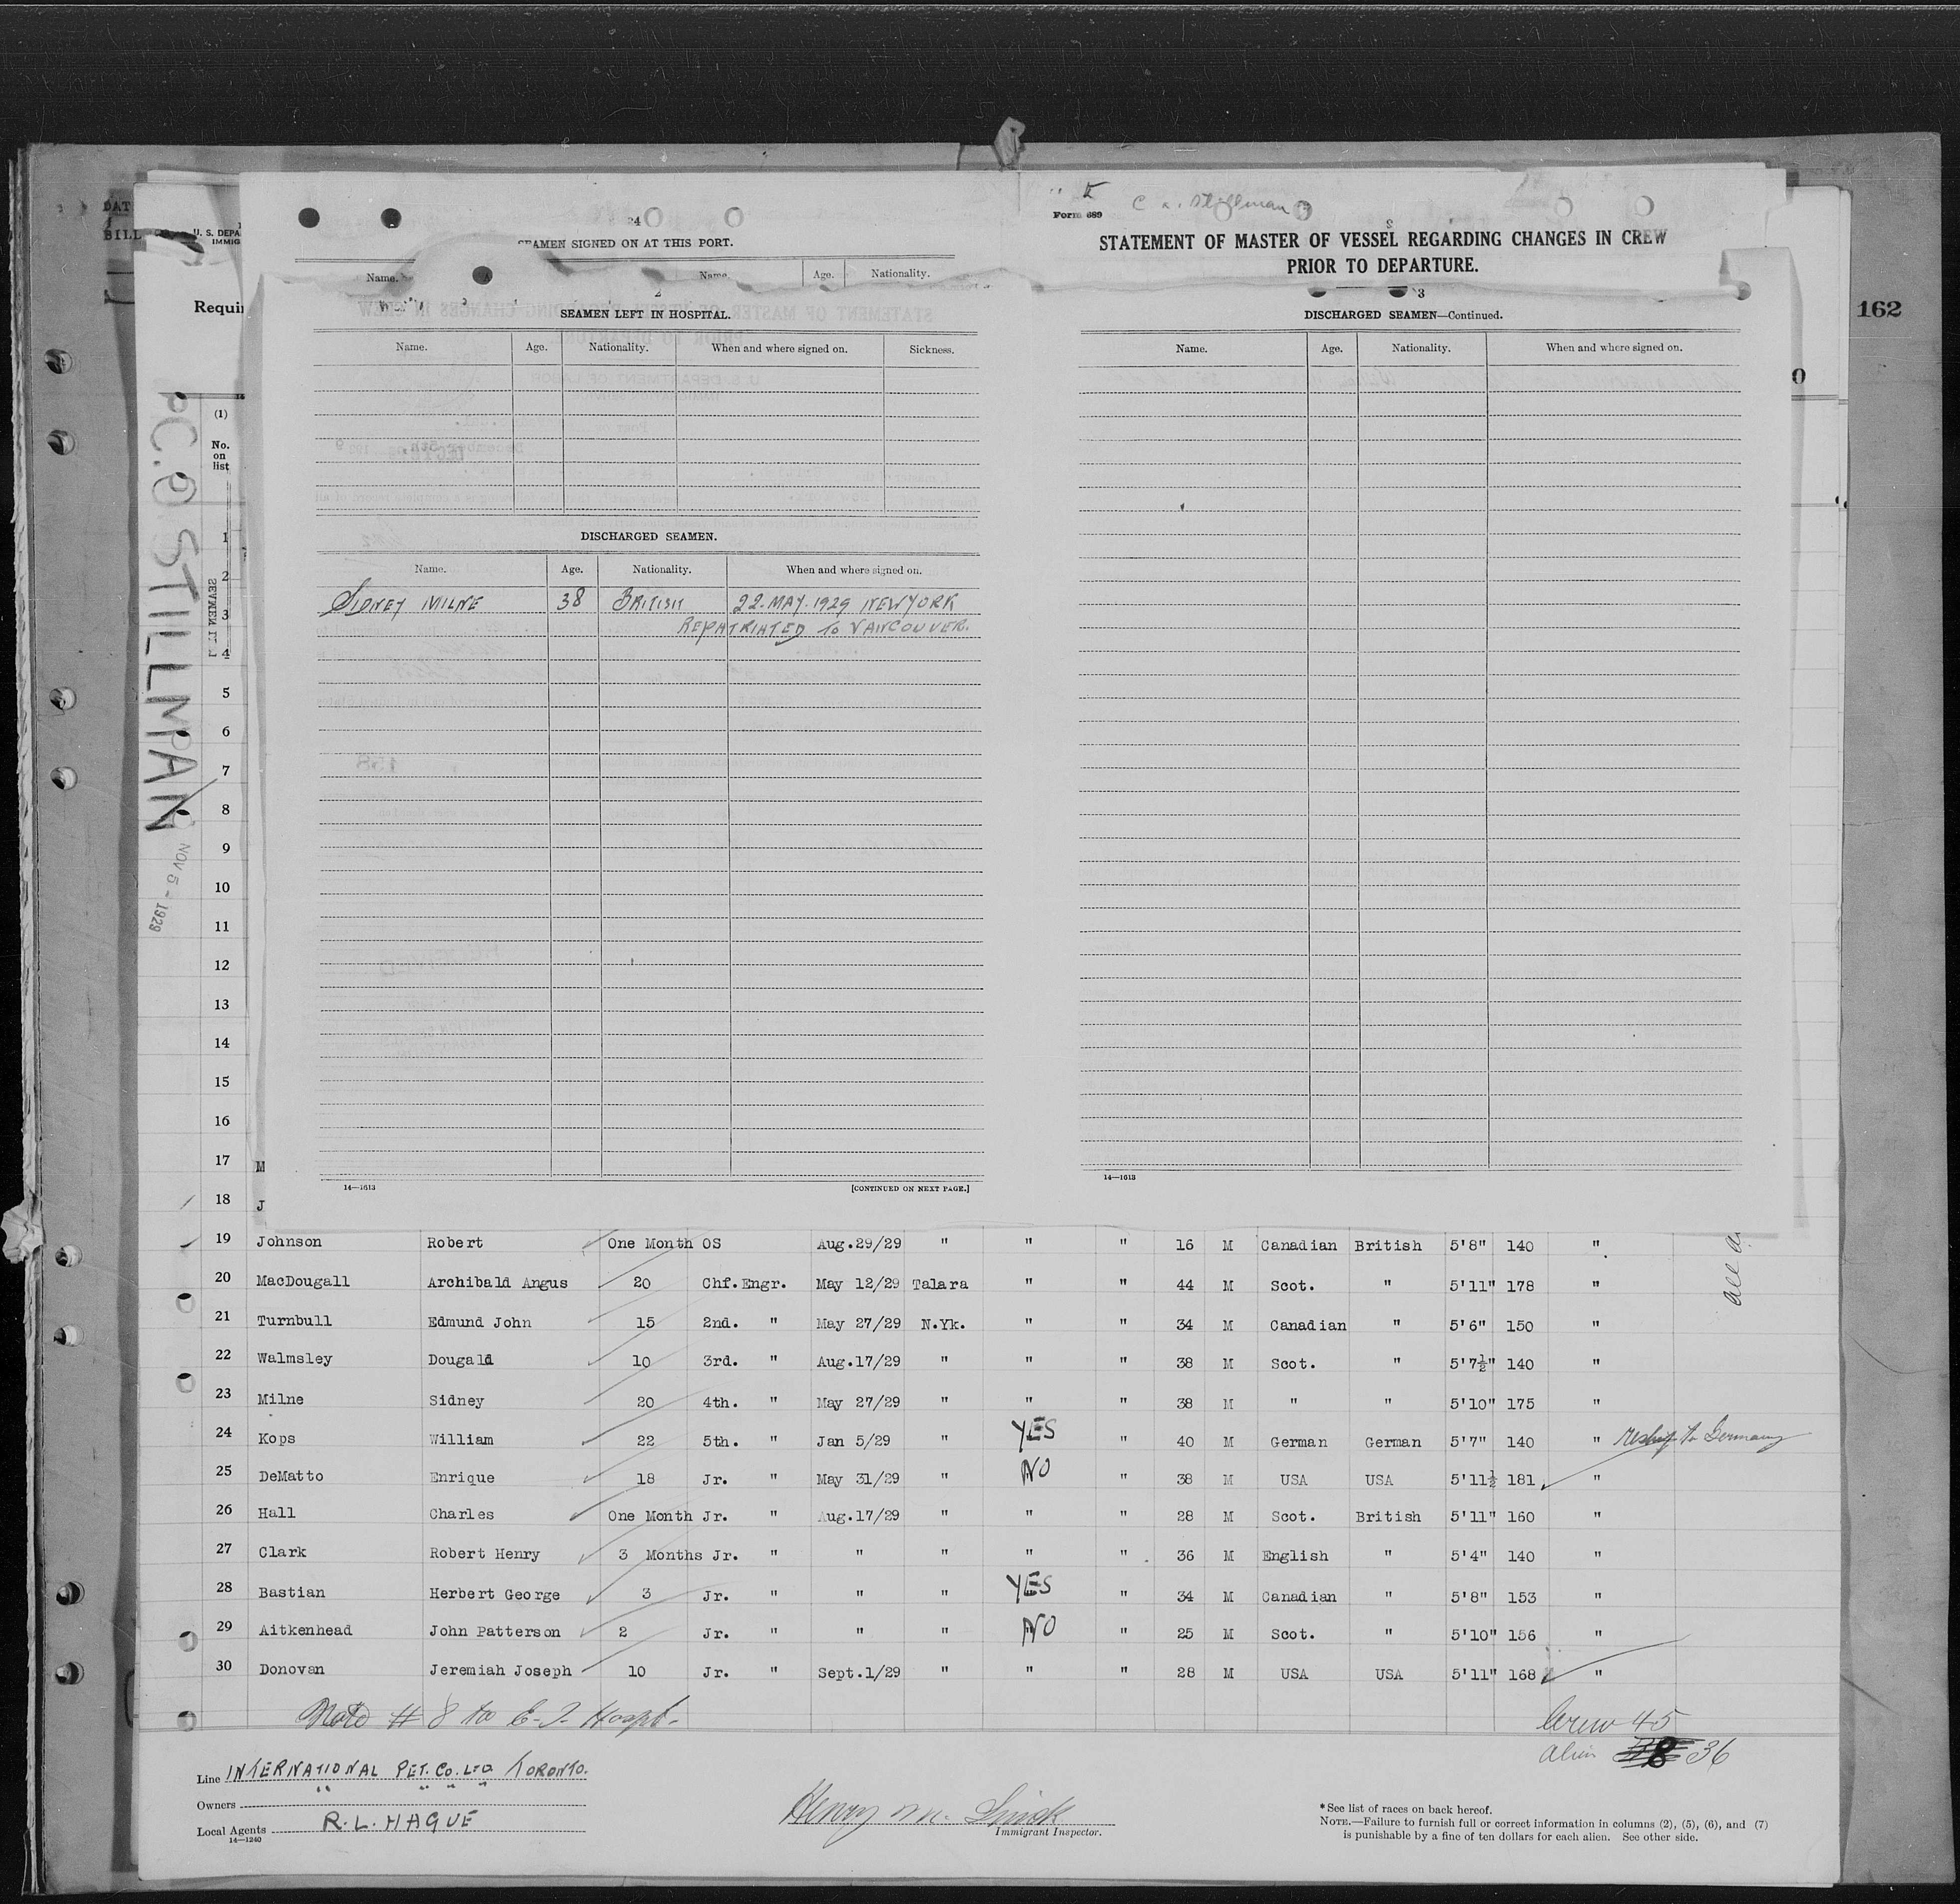 C. O. Stillman
Form 689
STATEMENT OF MASTER OF VESSEL REGARDING CHANGES IN CREW
PRIOR TO DEPARTURE.
24
SEAMEN SIGNED ON AT THIS PORT.
Name. Name. Age. Nationality.
DAT
BILL
U. S. DEPA
IMMIG
Requir
162
0
(1)
No.
on
list
P C.O STILLMAN
NOV 5 - 1929
2
SEAMEN LEFT IN HOSPITAL.
Name. Age. Nationality. When and where signed on. Sickness.
DISCHARGED SEAMEN.
Name. Age. Nationality. When and where signed on.
SIDNEY MILNE 38 BRITISH 22.MAY.1929 NEWYORK
REPATRIATED To VANCOUVER.
14—1613 [CONTINUED ON NEXT PAGE.]
3
DISCHARGED SEAMEN—Continued.
Name. Age. Nationality. When and where signed on.
14—1613
1
2
3
4
5
6
7
8
9
10
11
12
13
14
15
16
17 M
18 J
19 Johnson Robert One Month OS Aug.29/29 " " " 16 M Canadian British 5'8" 140 "
20 MacDougall Archibald Angus 20 Chf.Engr. May 12/29 Talara " " 44 M Scot. " 5'11" 178 "
21 Turnbull Edmund John 15 2nd. " May 27/29 N.Yk. " " 34 M Canadian " 5'6" 150 "
22 Walmsley Dougald 10 3rd. " Aug.17/29 " " " 38 M Scot. " 5'7½" 140 "
23 Milne Sidney 20 4th. " May 27/29 " " " 38 M " " 5'10" 175 "
24 Kops William 22 5th. " Jan 5/29 " YES " 40 M German German 5'7" 140 " reship to Germany
25 DeMatto Enrique 18 Jr. " May 31/29 " NO " 38 M USA USA 5'11½ 181 "
26 Hall Charles One Month Jr. " Aug.17/29 " " " 28 M Scot. British 5'11" 160 "
27 Clark Robert Henry 3 Months Jr. " " " " " 36 M English " 5'4" 140 "
28 Bastian Herbert George 3 Jr. " " " YES " 34 M Canadian " 5'8" 153 "
29 Aitkenhead John Patterson 2 Jr. " " " NO " 25 M Scot. " 5'10" 156 "
30 Donovan Jeremiah Joseph 10 Jr. " Sept.1/29 " " " 28 M USA USA 5'11" 168 "
Note # 8 to E-I- Hospt-
Crew 45
alien 36
Line INTERNATIONAL PET. CO. LTD TORONTO.
Owners " " " "
Local Agents R.L. HAGUE
14—1240
Henry M.
Immigrant Inspector.
*See list of races on back hereof.
NOTE.—Failure to furnish full or correct information in columns (2), (5), (6), and (7)
is punishable by a fine of ten dollars for each alien. See other side.